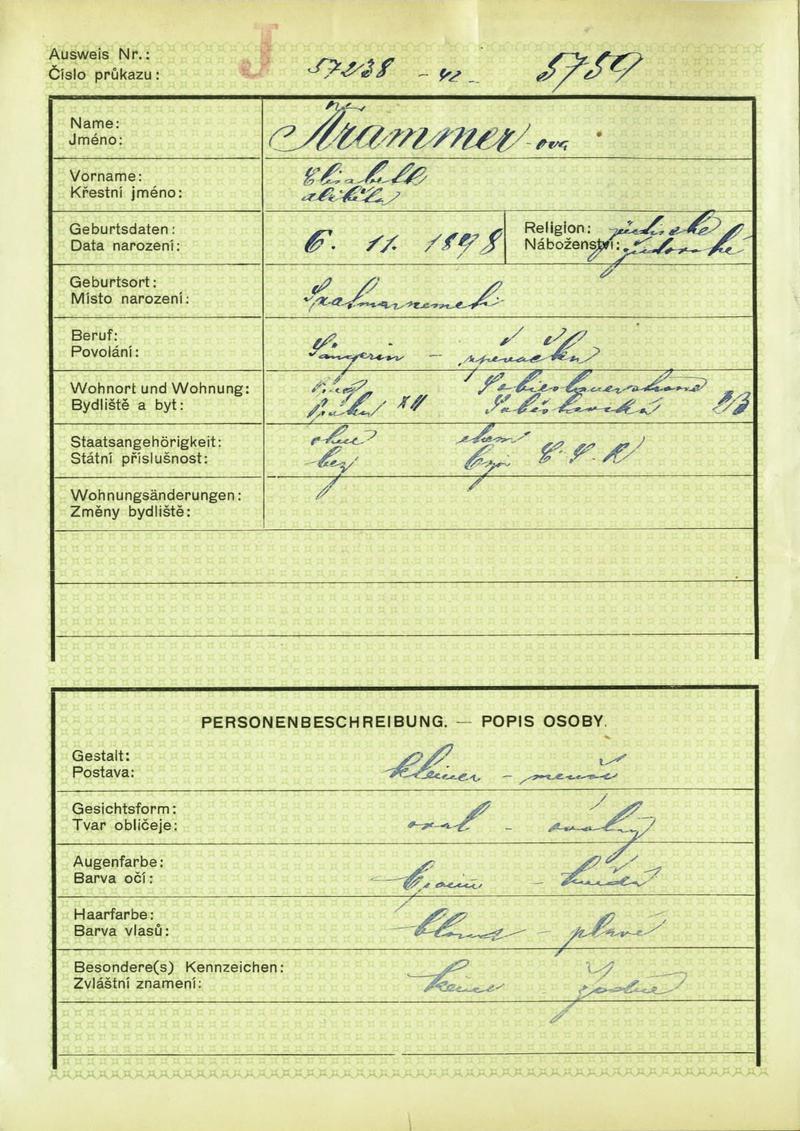 J
Ausweis Nr.:
Číslo průkazu: 57238 - 42 - 5759
Name:
Jméno: Krammer - ová
Vorname: Elisabeth
Křestní jméno: Alžběta
Geburtsdaten:
Data narození: 6. 11. 1898
Religion: jüdisch
Náboženství: židovské
Geburtsort:
Místo narození: Szatmarnemeti
Beruf:
Povolání: Sängerin - zpěvačka
Wohnort und Wohnung: Prag Sobieslauerstrasse
Bydliště a byt: Praha XII Soběslavská 23
Staatsangehörigkeit: ohne ehem
Státní příslušnost: bez Č. S. R
Wohnungsänderungen:
Změny bydliště:
PERSONENBESCHREIBUNG. — POPIS OSOBY.
Gestalt:
Postava: kleiner - menší
Gesichtsform:
Tvar obličeje: oval - oválný
Augenfarbe:
Barva očí: braun - hnědá
Haarfarbe:
Barva vlasů: blond - plavé
Besondere(s) Kennzeichen:
Zvláštní znamení: keine žádné